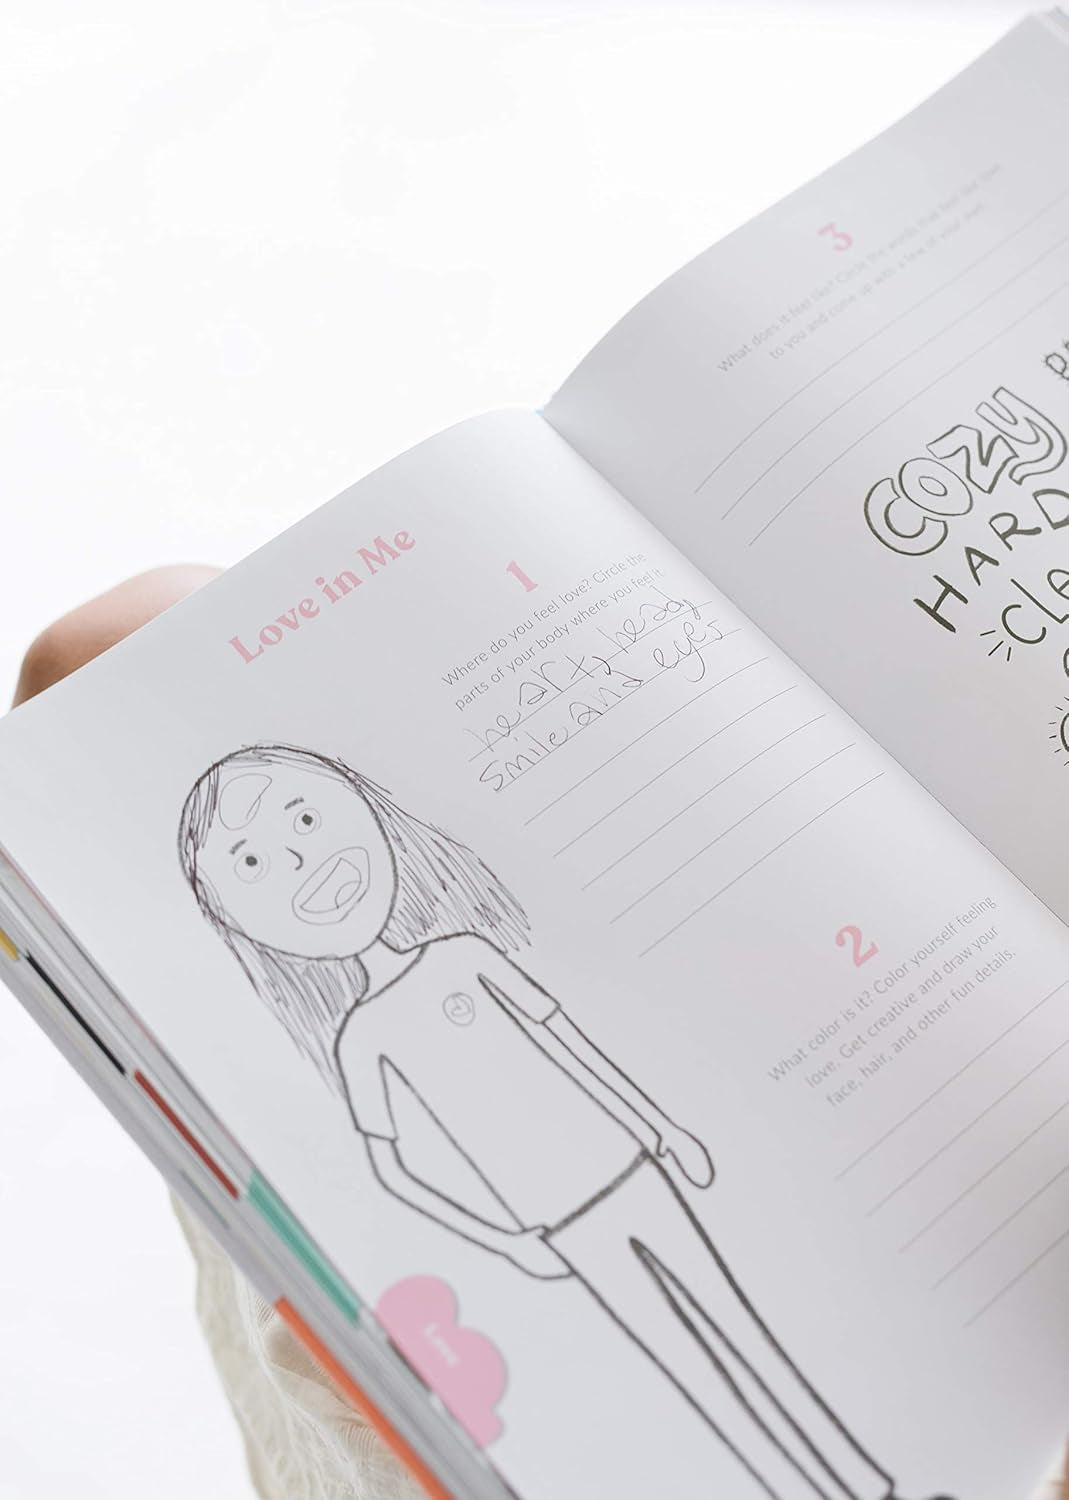 Love in Me
1
Where do you feel love? Circle the
parts of your body where you feel it.
heart, head,
smile and eyes
2
What color is it? Color yourself feeling
love. Get creative and draw your
face, hair, and other fun details.
Love
3
What does it feel like? Circle the words that feel like love
to you and come up with a few of your own.
COZY
HARD